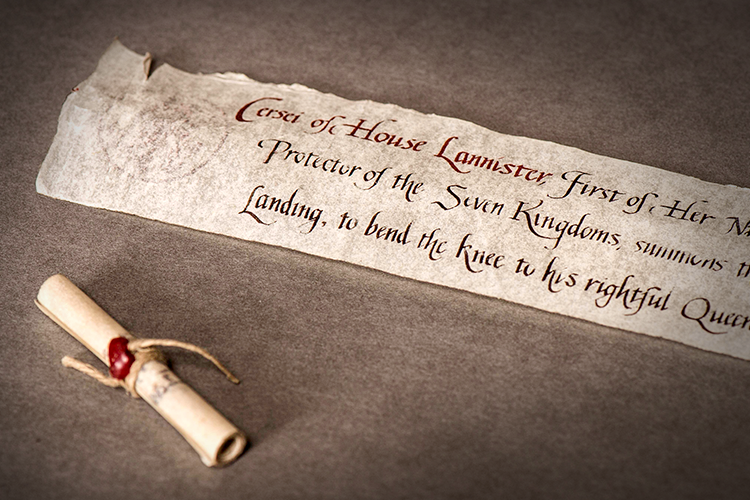 Cersei of House Lannister, First of Her
Protector of the Seven Kingdoms, summons
Landing, to bend the knee to his rightful Queen